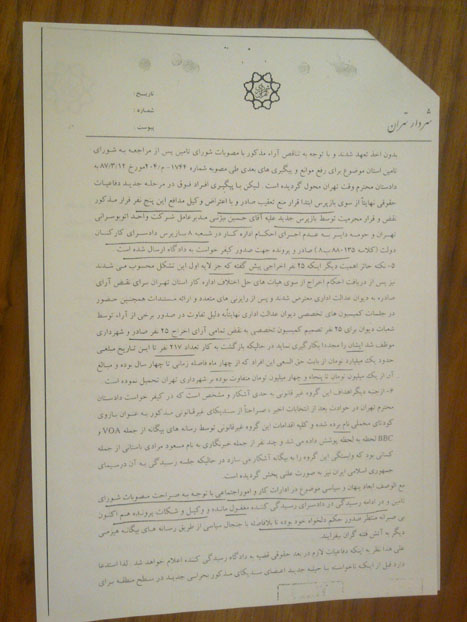 شهردار تهران
تاریخ:
شماره:
پیوست:
بدون اخذ تعهد شدند و با توجه به تناقض آراء مذکور با مصوبات شورای تامین پس از مراجعه به شورای
تامین استان موضوع برای رفع موانع و پیگیری های بعدی طی مصوبه شماره مورخ ۸۷/۳/۱۲ به
دادستان محترم وقت تهران محول گردیده است. لیکن با پیگیری افراد فوق در مرحله جدید دفاعیات
حقوقی نهایتاً از سوی بازپرس ابتدا قرار منع تعقیب صادر و با اعتراض وکیل مدافع این پنج نفر قرار مذکور
نقض و قرار مجرمیت توسط بازپرس جدید علیه آقای حسین بیژنی مدیر عامل شرکت واحد اتوبوسرانی
تهران و حومه دایر به عدم اجرای احکام اداره کار در شعبه ۸ بازپرس دادسرای کارکنان
دولت صادر و پرونده جهت صدور کیفر خواست به دادگاه ارسال شده است
۵- نکته حائز اهمیت دیگر اینکه ۲۵ نفر اخراجی پیش گفته که جز لایه اول این تشکل محسوب می شدند
نیز پس از دریافت احکام اخراج از سوی هیات های حل اختلاف اداره کار استان تهران برای نقض آرای
صادره به دیوان عدالت اداری معترض شدند و پس از رایزنی های متعدد و ارائه مستندات همچنین حضور
در جلسات کمیسیون های تخصصی دیوان عدالت اداری نهایتاً به دلیل تفاوت در صدور برخی از آراء، توسط
شعبات دیوان برای ۲۵ نفر تصمیم کمیسیون تخصصی به نقض تمامی آرای اخراج ۲۵ نفر صادر و شهرداری
موظف شد ایشان را مجددا بکارگیری نماید در حالیکه بازگشت به کار تعداد ۲۱۷ نفر تا این تاریخ مبلغی
حدود یک میلیارد تومان از بابت حق السعی این افراد که از چهار ماه فاصله زمانی تا چهار سال بوده و مبالغ
آن از یک میلیون تومان تا پنجاه و چهار میلیون تومان متفاوت بوده بر شهرداری تهران تحمیل نموده است.
۶- از جنبه دیگر اهداف این گروه غیر قانونی به حدی آشکار و مشخص است که در کیفر خواست دادستان
محترم تهران در حوادث بعد از انتخابات اخیر، صراحتاً از سندیکای غیرقانونی مذکور به عنوان بازوی
کودتای مخملی نام برده شده و کلیه اقدامات این گروه غیرقانونی توسط رسانه های بیگانه از جمله VOA و
BBC لحظه به لحظه پوشش داده می شد و چند نفر از جمله خبرنگاری به نام مسعود مرادی باستانی از جمله
کسانی بود که وابستگی این گروه را به بیگانه آشکار می سازد در حالیکه جلسه رسیدگی به آن در سیمای
جمهوری اسلامی ایران نیز به صورت علنی پخش گردیده است.
مع الوصف ابعاد پنهان و سیاسی موضوع در ادارات کار و امور اجتماعی با توجه به صراحت مصوبات شورای
تامین و در ادامه رسیدگی در دادسرای رسیدگی کننده مغفول مانده و وکیل و شکات پرونده هم اکنون
بی صبرانه منتظر صدور حکم دلخواه خود بوده تا بلافاصله با جنجال سیاسی از طریق رسانه های بیگانه هیزمی
دیگر به آتش فتنه گران بیفزایند.
علی هذا نظر به اینکه دفاعیات لازم در بعد حقوقی قضیه به دادگاه رسیدگی کننده اعلام خواهد شد. لذا استدعا
دارد قبل از اینکه ناخواسته با حیثیه جدید اعضای سندیکای مذکور بحرانی جدید در سطح منطقه برای